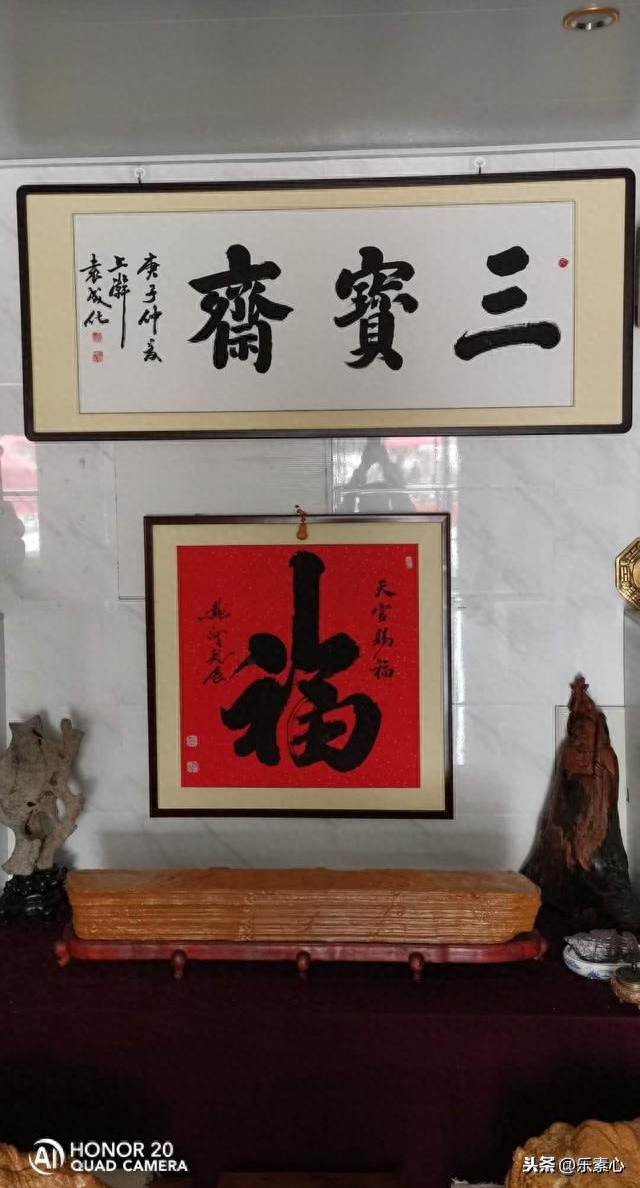 三寶齋
庚子仲夏
上澣
袁成化
天官賜福
福
HONOR 20
QUAD CAMERA
AI
头条 @乐素心